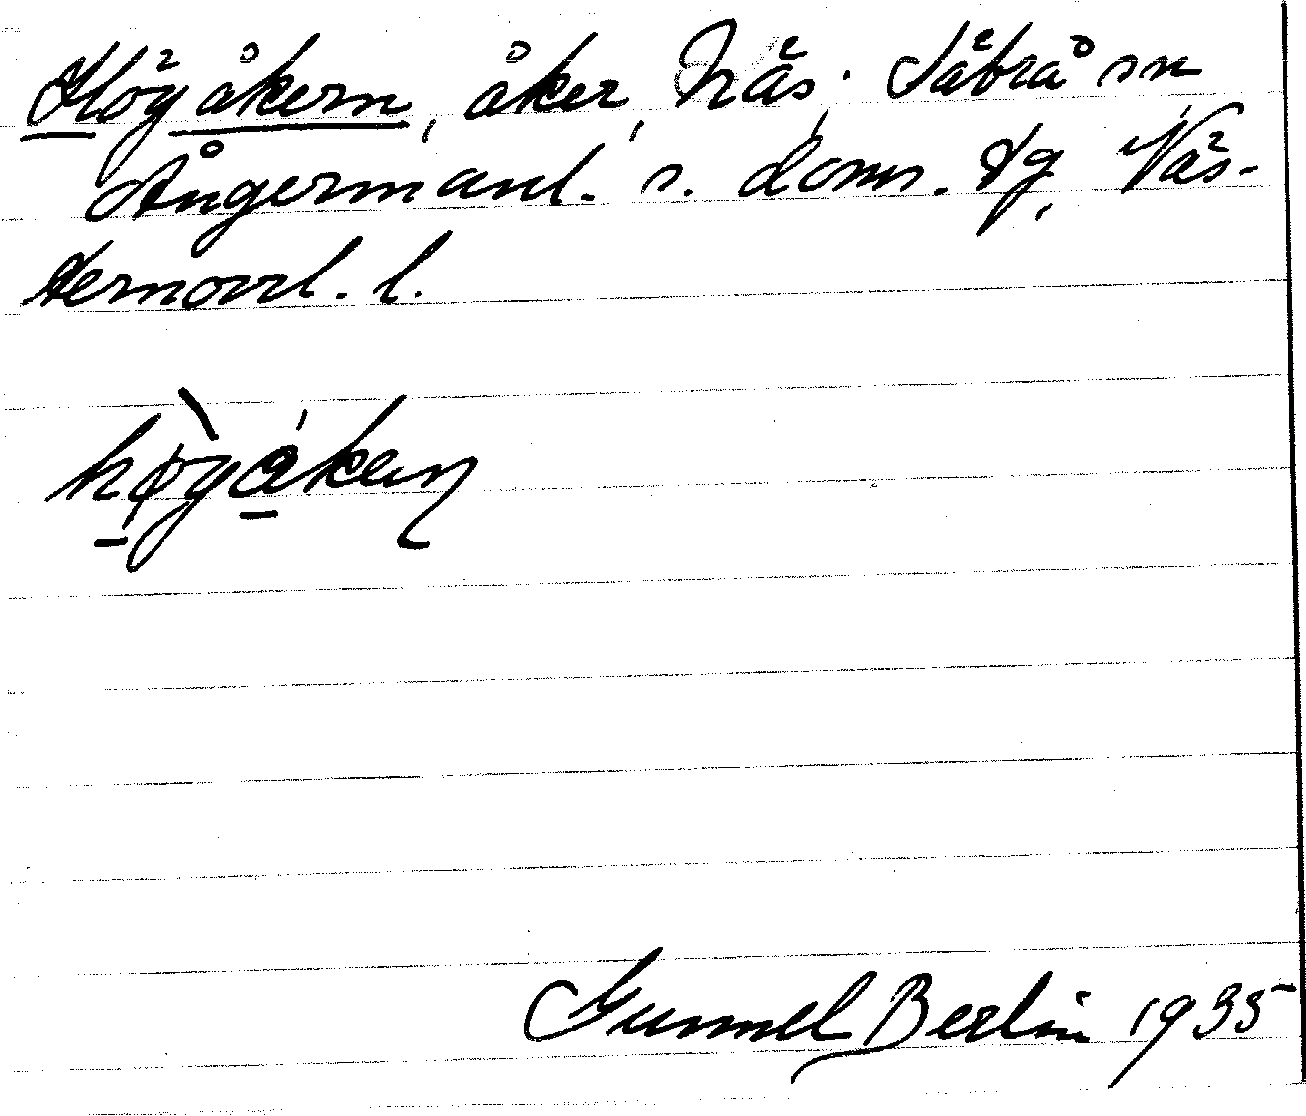 Högåkern, åker, Näs, Säbrå sn,
Ångermanl. s. doms. tg, Väs-
ternorrl. l.
høgåkeɳ
Gunnel Berlin 1935